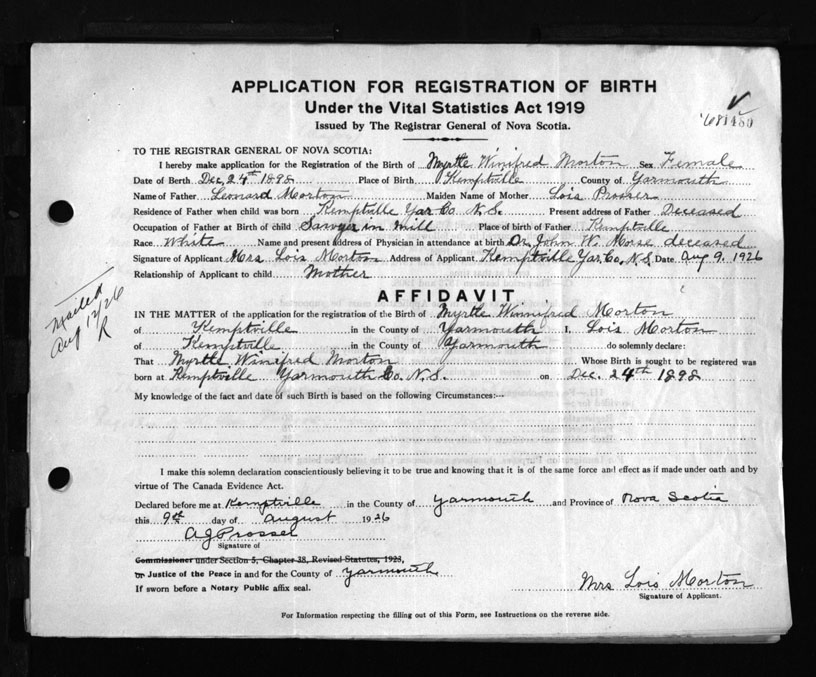 APPLICATION FOR REGISTRATION OF BIRTH
Under the Vital Statistics Act 1919
Issued by The Registrar General of Nova Scotia.
TO THE REGISTRAR GENERAL OF NOVA SCOTIA:
I hereby make application for the Registration of the Birth of Myrtle Winifred Morton Sex Female
Date of Birth Dec, 24th 1898 Place of Birth Kemptville County of Yarmouth
Name of Father Leonard Morton Maiden Name of Mother Lois Prosser
Residence of Father when child was born Kemptville Yar Co. N.S. Present address of Father Deceased
Occupation of Father at Birth of child Sawyer in mill Place of birth of Father Kemptville
Race White Name and present address of Physician in attendance at birth Dr. John W. Morse deceased
Signature of Applicant Mrs Lois Morton Address of Applicant Kemptville Yar. Co. N.S. Date Aug 9. 1926
Relationship of Applicant to child Mother
mailed
Aug 12/26
R
AFFIDAVIT
IN THE MATTER of the application for the registration of the Birth of Myrtle Winnifred Morton
of Kemptville in the County of Yarmouth I, Lois Morton
of Kemptville in the County of Yarmouth do solemnly declare:
That Myrtle Winifred Morton Whose Birth is sought to be registered was
born at Kemptville Yarmouth Co. N.S. on Dec. 24th 1898
My knowledge of the fact and date of such Birth is based on the following Circumstances:--
I make this solemn declaration conscientiously believing it to be true and knowing that it is of the same force and effect as if made under oath and by
virtue of The Canada Evidence Act.
Declared before me at Kemptville in the County of Yarmouth and Province of Nova Scotia
this 9th day of August 1926
A J Prosser
Signature of
Commissioner under Section 5, Chapter 38, Revised Statutes, 1923,
or Justice of the Peace in and for the County of Yarmouth
If sworn before a Notary Public affix seal.
Mrs Lois Morton
Signature of Applicant.
For Information respecting the filling out of this Form, see Instructions on the reverse side.